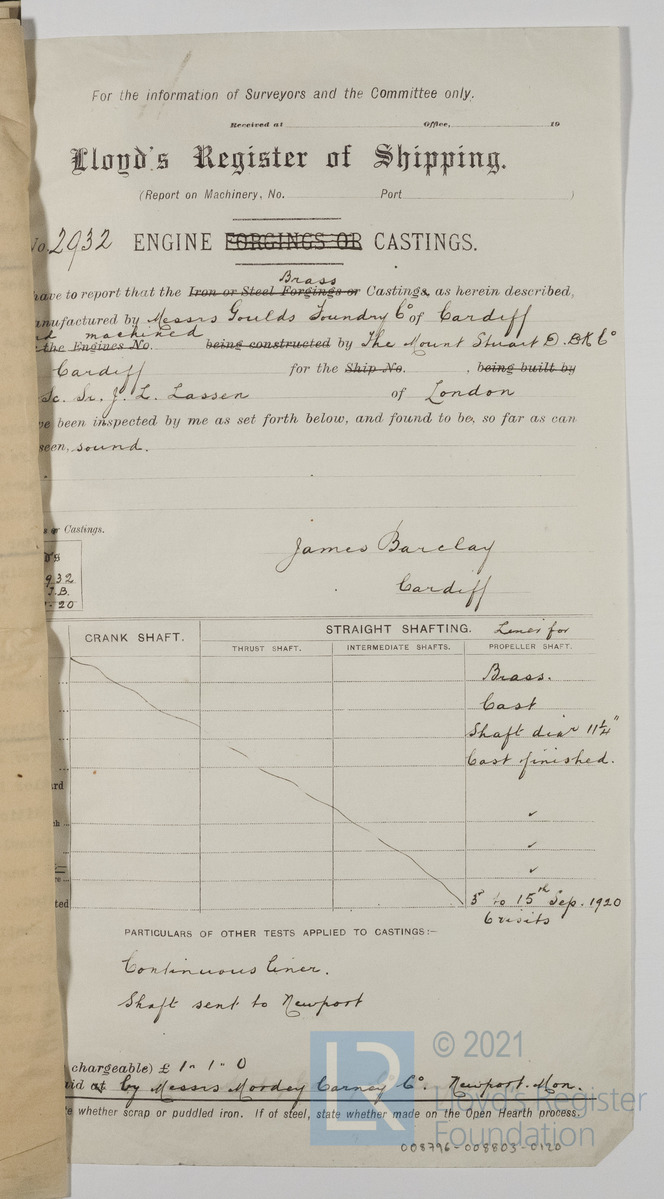 For the information of Surveyors and the Committee only.
Received at Office, 19
Lloyd's Register of Shipping.
(Report on Machinery, No. Port )
No. 2932 ENGINE FORGINGS OR CASTINGS.
Brass
have to report that the Iron or Steel Forgings or Castings, as herein described,
anufactured by Messrs Goulds Foundry Co of Cardiff
nd machined
the Engines No. being constructed by The Mount Stuart D. Dk Co
Cardiff for the Ship No. , being built by
Sc. Sr. J. L. Lassen of London
ve been inspected by me as set forth below, and found to be, so far as can
seen, sound.
or Castings.
James Barclay
Cardiff
D'S
932
J.B.
20
CRANK SHAFT. STRAIGHT SHAFTING. Liner for
THRUST SHAFT. INTERMEDIATE SHAFTS. PROPELLER SHAFT.
Brass.
Cast
Shaft diar 11¼"
Cast finished.
rd
✓
✓
✓
ted
3rd to 15th Sep. 1920
6 visits
PARTICULARS OF OTHER TESTS APPLIED TO CASTINGS:—
Continuous liner.
Shaft sent to Newport
chargeable) £ 1 " 1 " 0
aid at by Messrs Mordey Carney Co. Newport. Mon.
e whether scrap or puddled iron. If of steel, state whether made on the Open Hearth process.
LR
© 2021
Lloyd's Register
Foundation
008796-008803-0120